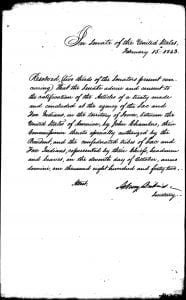 In Senate of the United States,
February 15th 1843.
Resolved, (two thirds of the Senators present con-
curring) That the Senate advise and consent to
the ratification of the Articles of a treaty made
and concluded at the agency of the Sac and
Fox Indians, in the territory of Iowa, between the
United States of America, by John Chambers, their
Commissioner thereto specially authorized by the
President, and the confederated tribes of Sac and
Fox Indians, represented by their chiefs, headmen
and braves, on the eleventh day of October, anno
domini, one thousand eight hundred and forty two.
Attest,
Asbury Dickins
Secretary.